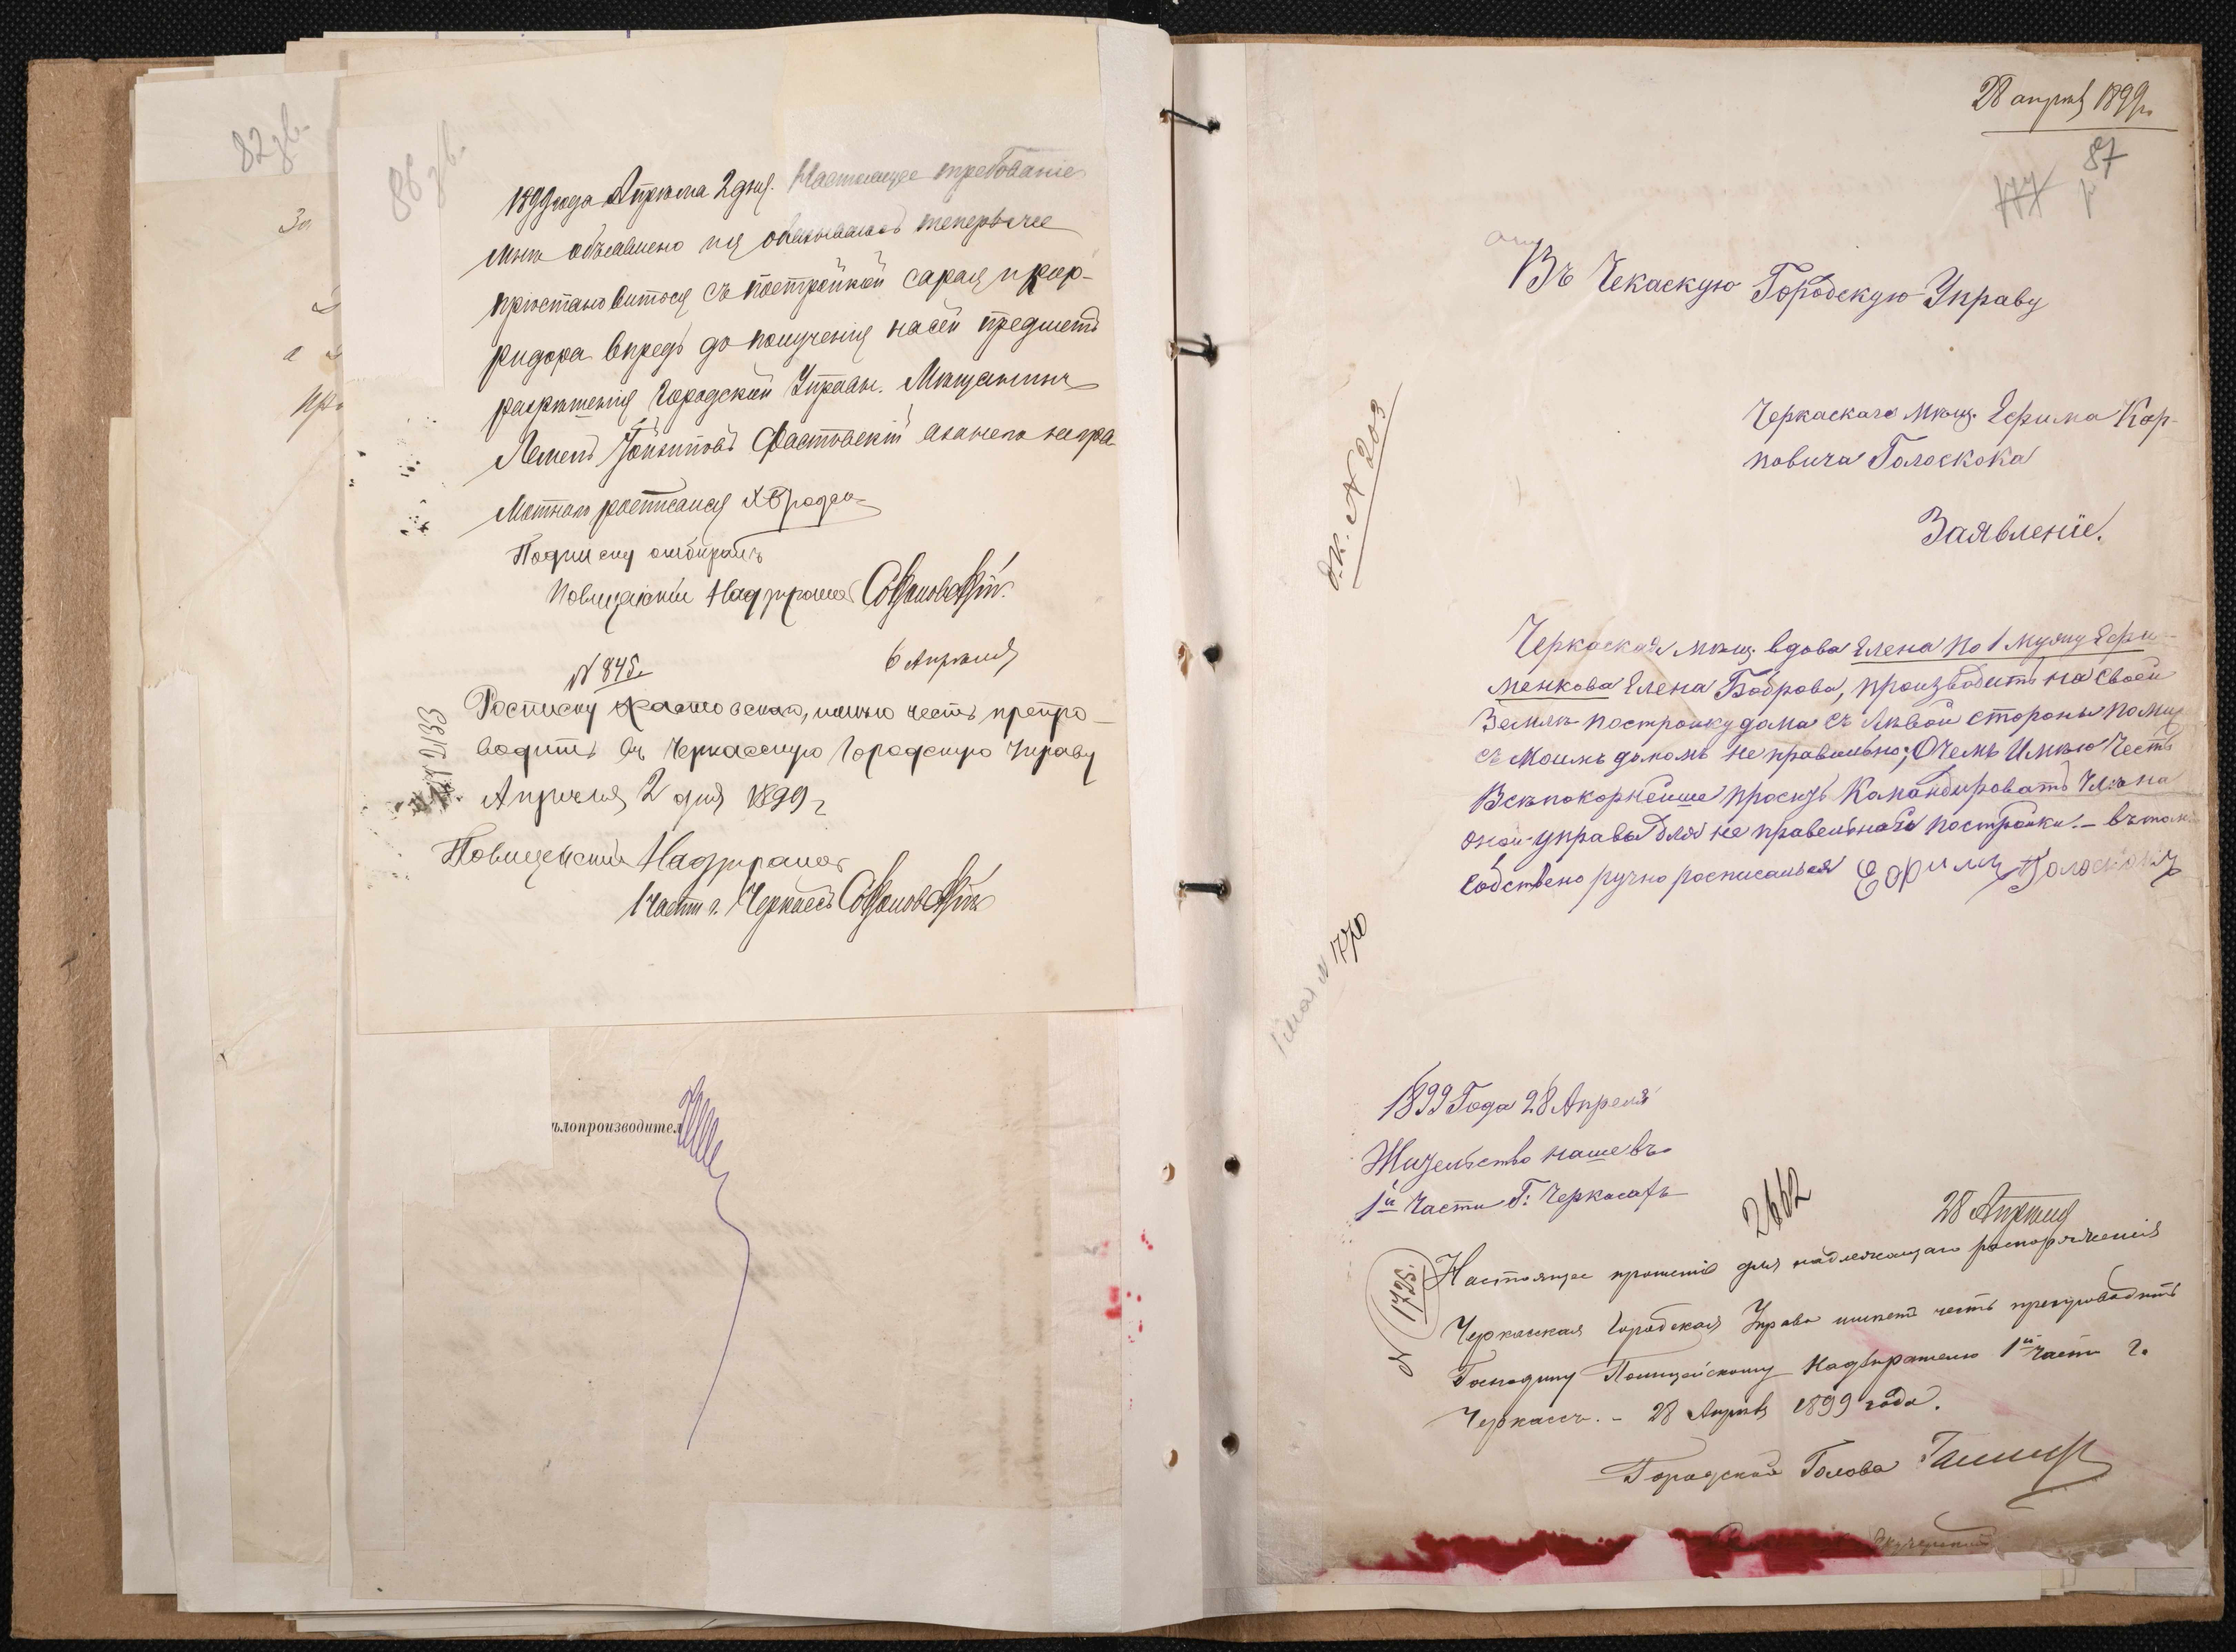 82 зв.
86 зв.
1899 года Апреля 2 дня. Настоящее требованіе
мне объявлено и я обязываюсь теперь же
пріостановится съ постройкой сарая и кор-
ридора впредь до полученія на сей предметъ
разрешенія Городской Управы. Мещанинъ
Лемель Фастовскій а за него негра
мотнаго росписался
Подписку отбиралъ
Полицейскій Надзиратель
6 Апреля
№ 845.
Росписку Фастовскаго, имею честь препро-
водить въ Черкасскую Городскую Управу
Апреля 2 дня 1899 г.
Полицейскій Надзиратель
1 части г. Черкассъ
ѣлопроизводител
28 апреля 1899 г.
87
177
Въ Чекаскую Городскую Управу
Черкаскаго мещ. Ефима Кар-
повича Голоскока
Заявленіе.
О.К. № 203
Черкаская мещ. вдова Елена по 1 мужу Ефи-
менкова Елена Боброва, производитъ на своей
Земле постройку дома съ левой стороны
съ моимъ домомъ не правильно; О чемъ Имею Честь
Всепокорнейше просить Камандировать Члена
оной управы для не правельной постройки. –
собствено ручно росписался Ефимъ Голоскокъ
1 мая № 1770
1899 Года 28 Апреля
Жительство наше въ
1й Части Г: Черкасахъ
2662
28 Апреля
№ 1725.
Настоящее прошеніе для надлежащаго распоряженія
Черкасская Городская Управа имеетъ честь препроводить
Господину Полицейскому Надзирателю 1й части г.
Черкассъ. – 28 Апреля 1899 года.
Городской Голова